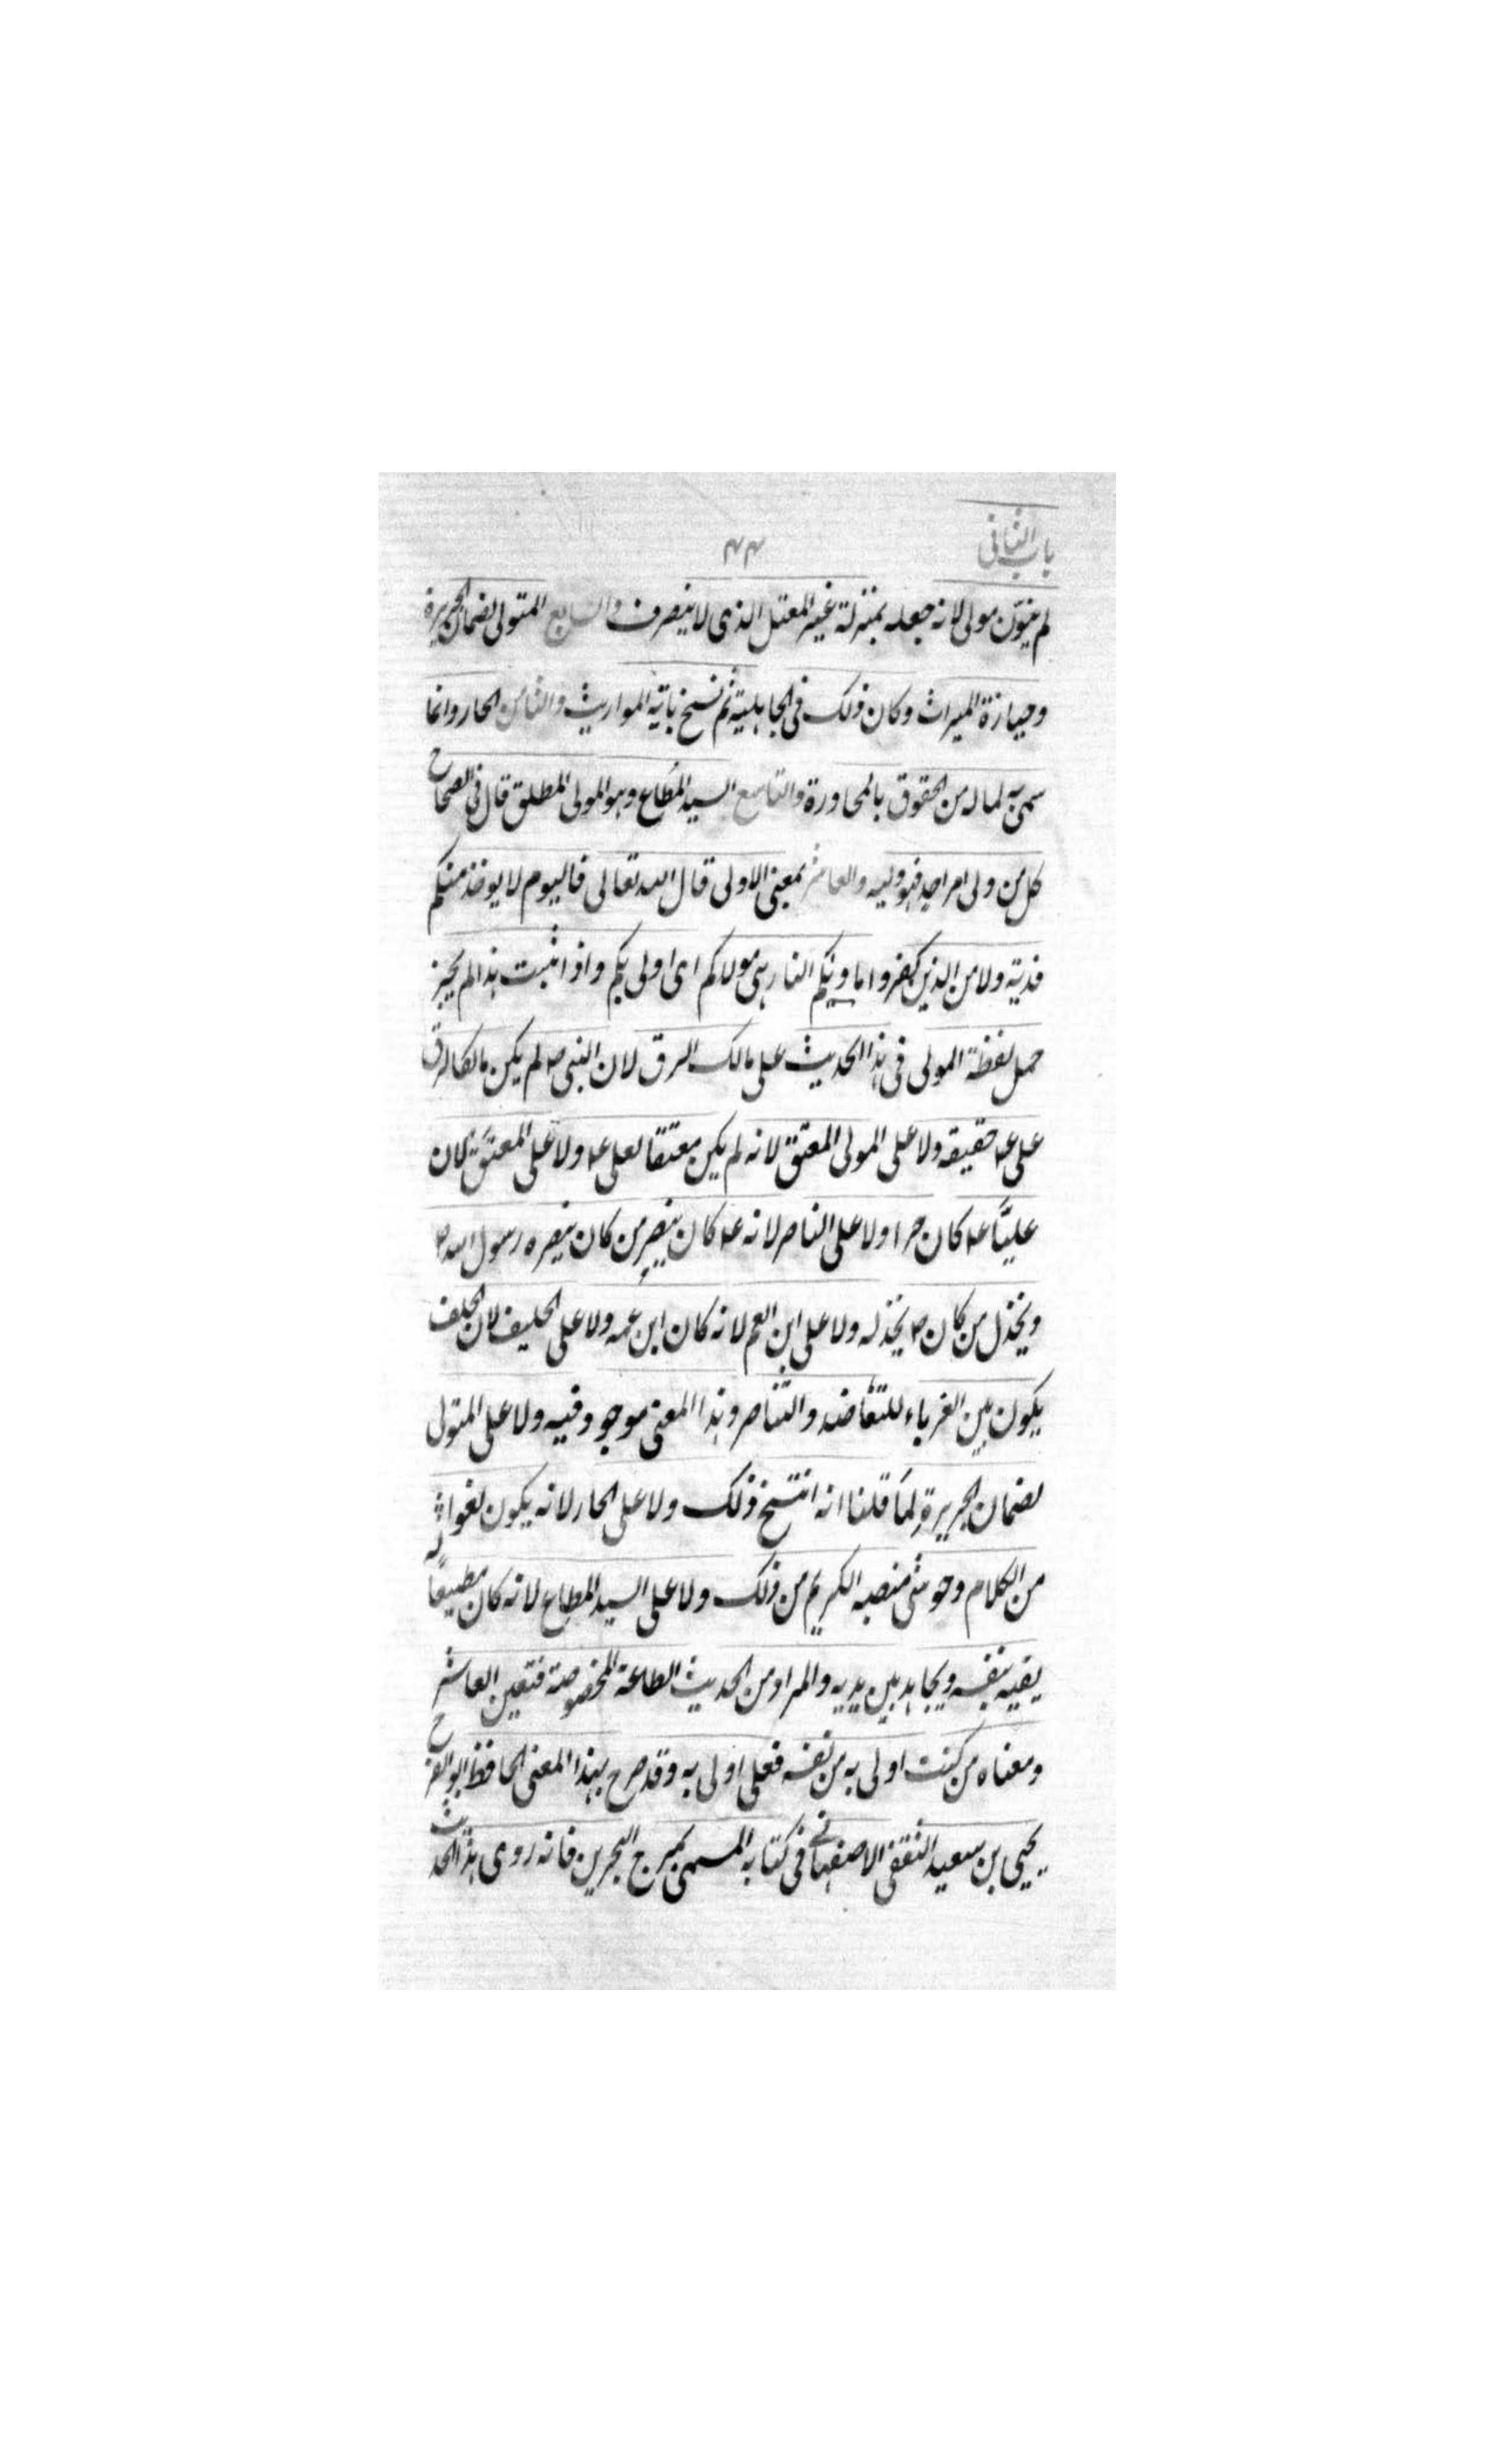 باب الثانی
۴۴
لم ینوّن مولی لانه جعله بمنزلة غیر المعتل الذی لا ینصرف والسابع المتولی لضمان الجریرة
وحیازة المیراث وکان ذلک فی الجاهلیة ثم نسخ بآیة المواریث والثامن الجار وانما
سمی به لما له من الحقوق بالمجاورة والتاسع السید المُطاع وهو المولی المطلق قال فی الصحاح
کل من ولی امر احد فهو ولیه والعاشر بمعنی الاولی قال الله تعالی فالیوم لا یوخذ منکم
فدیة ولا من الذین کفروا ماویکم النار هی مولاکم ای اولی بکم واذا ثبت هذا لم یجز
حمل لفظة المولی فی هذا الحدیث علی مالک الرق لان النبی ص لم یکن مالکا لرق
علی ع حقیقه ولا علی المولی المعتق لانه لم یکن معتقا لعلی ع ولا علی المعتَق لان
علیّاً ع کان حرا ولا علی الناصر لانه ع کان ینصر من کان ینصره رسول الله ص
ویخذل من کان ص یخذله ولا علی ابن العم لانه کان ابن عمه ولا علی الحلیف لان الحلف
یکون بین الغرباء للتعاضد والتناصر وهذا المعنی موجود فیه ولا علی المتولی
لضمان الجریرةِ لِمَا قلنا انه انتسخ ذلک ولا علی الجار لانه یکون لغوا
من الکلام وحوشی منصبه الکریم من ذلک ولا علی السید المطاع لانه کان مطیعاً له
یقیه بنفسه ویجاهد بین یدیه والمراد من الحدیث الطاعة المخصوصة فتعین العاشر
ومعناه من کنت اولی به من نفسه فعلی اولی به وقد صرح بهذا المعنی الحافظ ابو الفرج
یحیی بن سعید الثقفی الاصفهانی فی کتابه المسمی بمرج البحرین فانه روی هذا الحدیث